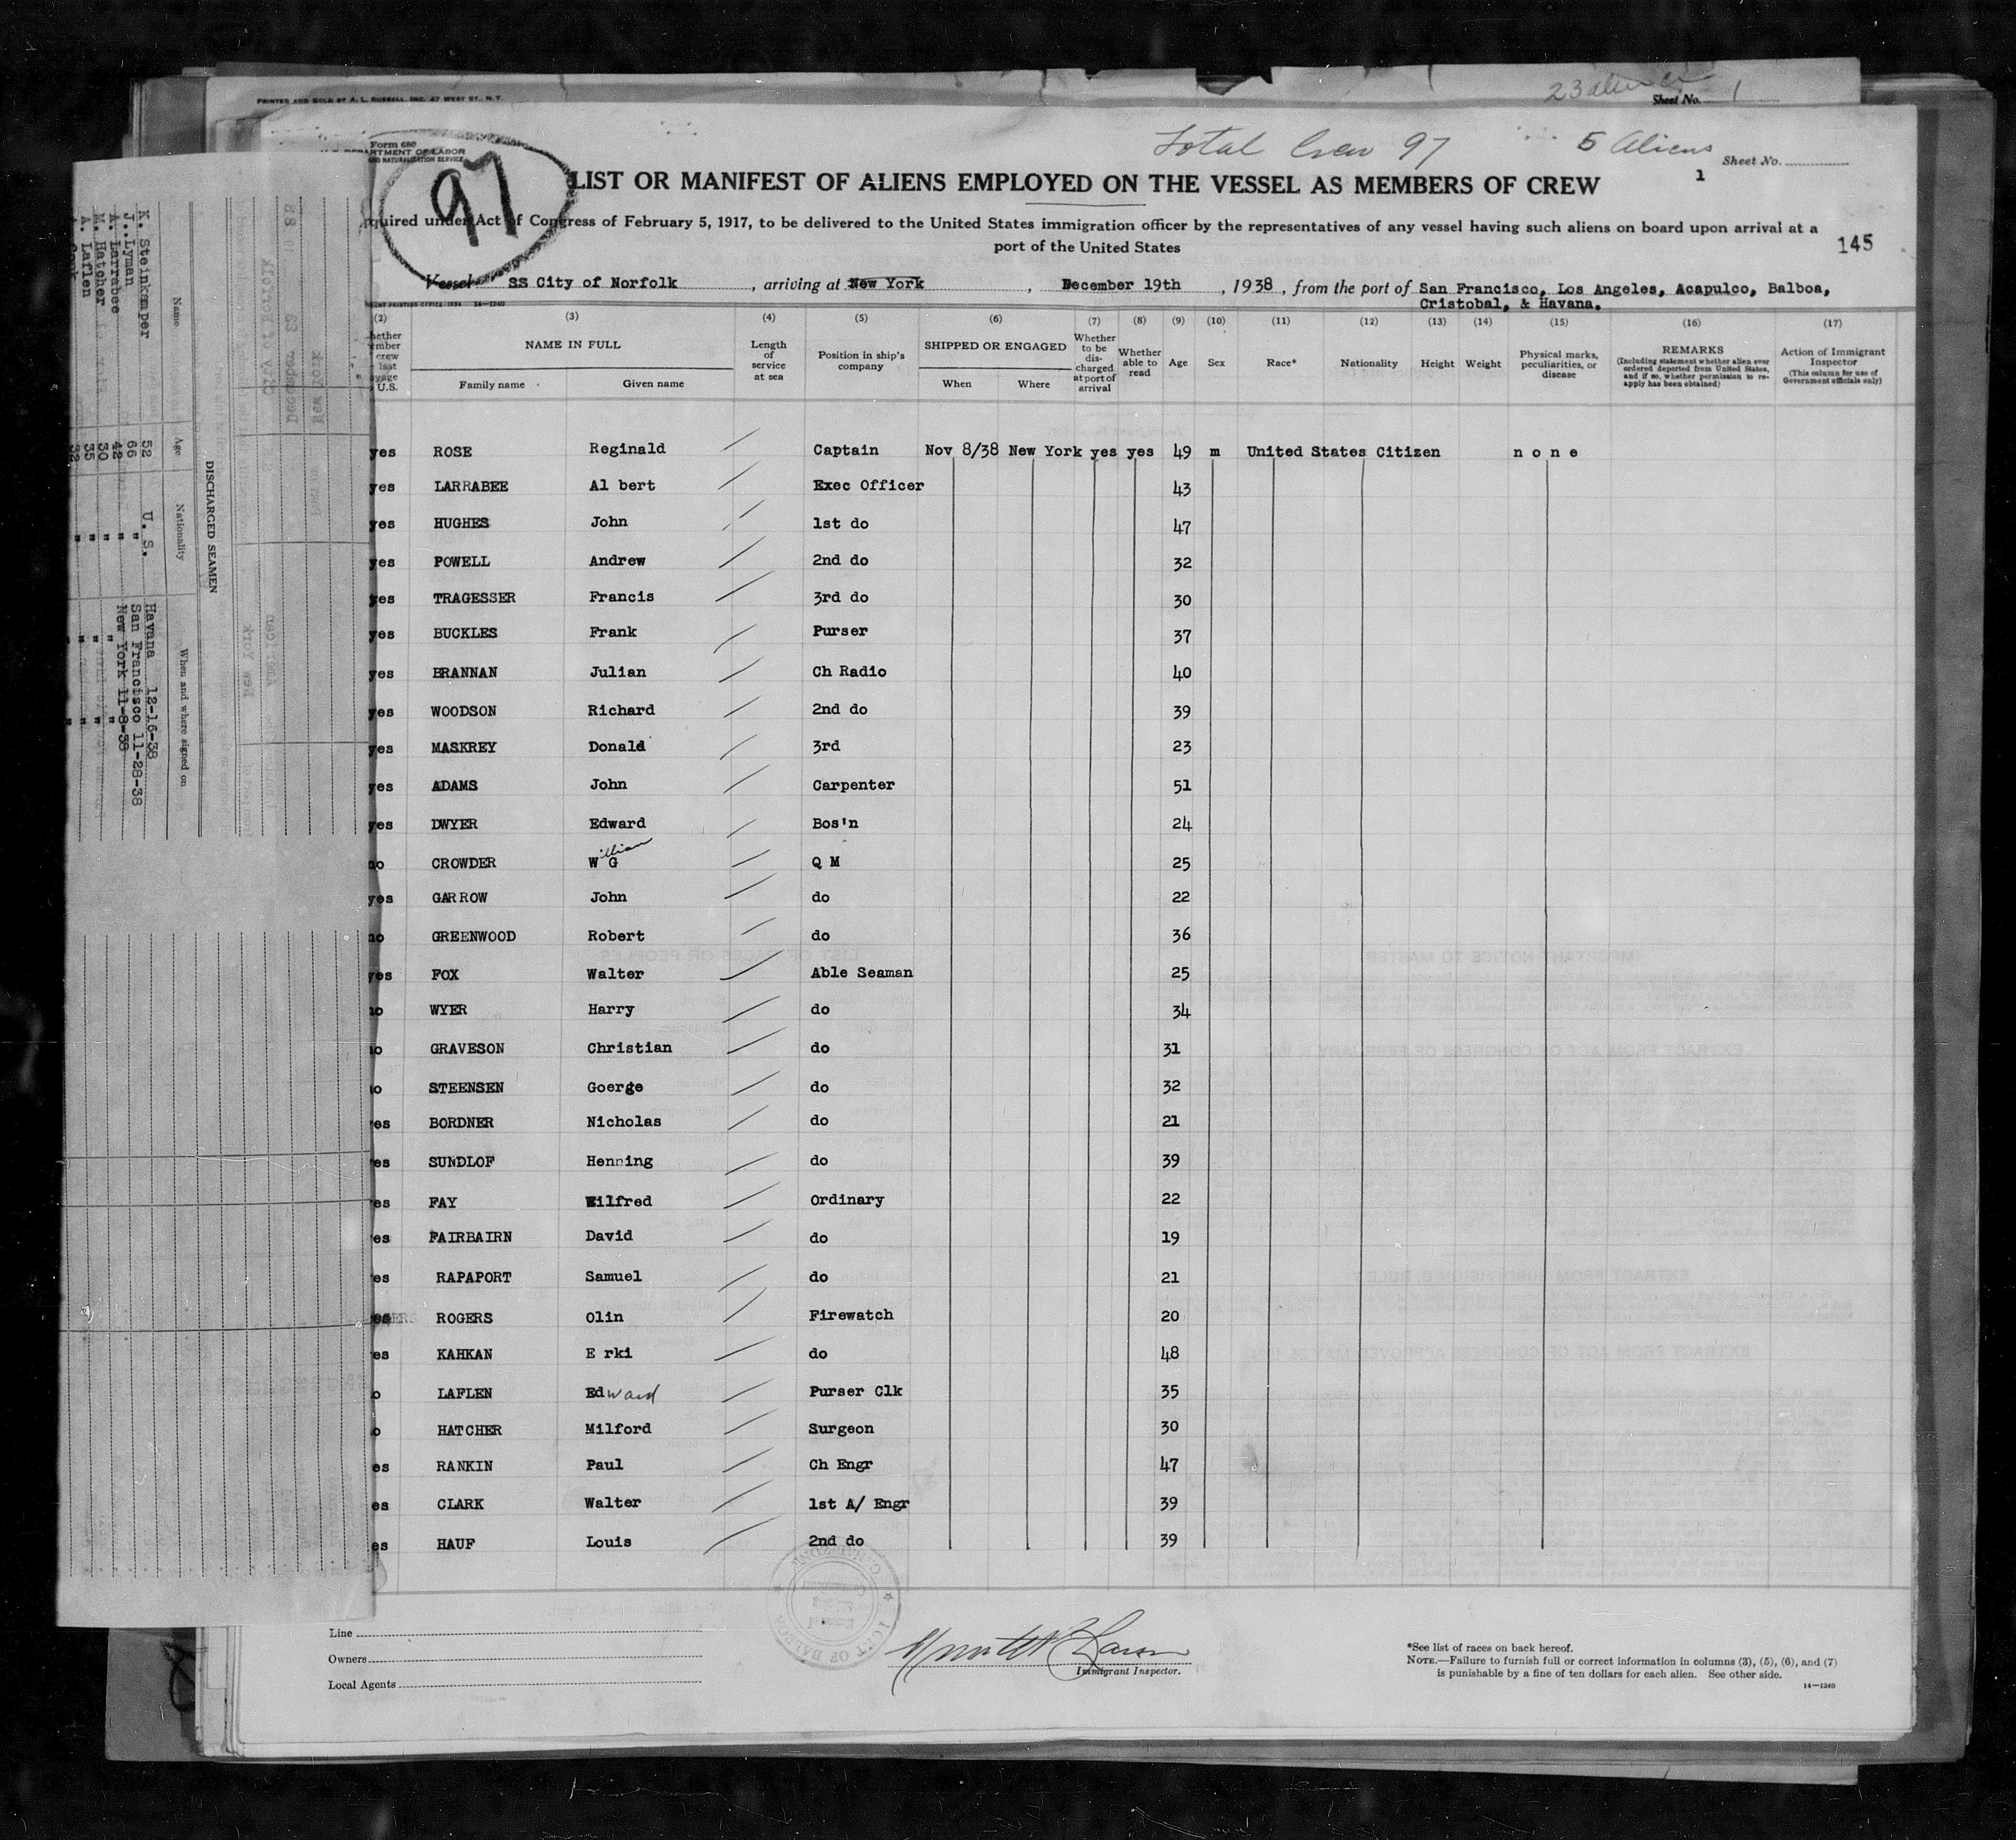 PRINTED AND SOLD BY A. L. RUSSELL, INC. 47 WEST ST., N.Y.
Sheet No. 1
Total Crew 97
5 Aliens
Sheet No.
1
Form 680
97
LIST OR MANIFEST OF ALIENS EMPLOYED ON THE VESSEL AS MEMBERS OF CREW
quired under Act of Congress of February 5, 1917, to be delivered to the United States immigration officer by the representatives of any vessel having such aliens on board upon arrival at a
port of the United States
145
Vessel SS City of Norfolk, arriving at New York, December 19th, 1938, from the port of San Francisco, Los Angeles, Acapulco, Balboa,
Cristobal, & Havana.
(2) (3) (4) (5) (6) (7) (8) (9) (10) (11) (12) (13) (14) (15) (16) (17)
NAME IN FULL
Family name Given name
Length of service at sea
Position in ship's company
SHIPPED OR ENGAGED
When Where
Whether to be discharged at port of arrival
Whether able to read
Age Sex Race* Nationality Height Weight
Physical marks, peculiarities, or disease
REMARKS
(Including statement whether alien ever ordered deported from United States, and if so, whether permission to reapply has been obtained)
Action of Immigrant Inspector
(This column for use of Government officials only)
yes ROSE Reginald Captain Nov 8/38 New York yes yes 49 m United States Citizen none
yes LARRABEE Al bert Exec Officer 43
yes HUGHES John 1st do 47
yes POWELL Andrew 2nd do 32
yes TRAGESSER Francis 3rd do 30
yes BUCKLES Frank Purser 37
yes BRANNAN Julian Ch Radio 40
yes WOODSON Richard 2nd do 39
yes MASKREY Donald 3rd 23
yes ADAMS John Carpenter 51
yes DWYER Edward Bos'n 24
no CROWDER William G Q M 25
yes GARROW John do 22
no GREENWOOD Robert do 36
yes FOX Walter Able Seaman 25
no WYER Harry do 34
o GRAVESON Christian do 31
o STEENSEN Goerge do 32
es BORDNER Nicholas do 21
es SUNDLOF Henning do 39
es FAY Wilfred Ordinary 22
es FAIRBAIRN David do 19
es RAPAPORT Samuel do 21
es ROGERS Olin Firewatch 20
es KAHKAN E rki do 48
o LAFLEN Edward Purser Clk 35
o HATCHER Milford Surgeon 30
es RANKIN Paul Ch Engr 47
es CLARK Walter 1st A/ Engr 39
es HAUF Louis 2nd do 39
Line
Owners
Local Agents
Immigrant Inspector.
*See list of races on back hereof.
NOTE.—Failure to furnish full or correct information in columns (3), (5), (6), and (7)
is punishable by a fine of ten dollars for each alien. See other side.
14—1240
DISCHARGED SEAMEN
Name Age Nationality When and where signed on
K. Steinkamper 52 U. S. Havana 12-16-38
J. Lyman 66 " San Francisco 11-28-38
A. Larrabee 42 " New York 11-8-38
M. Hatcher 30 " "
A. Laflen 35 " "